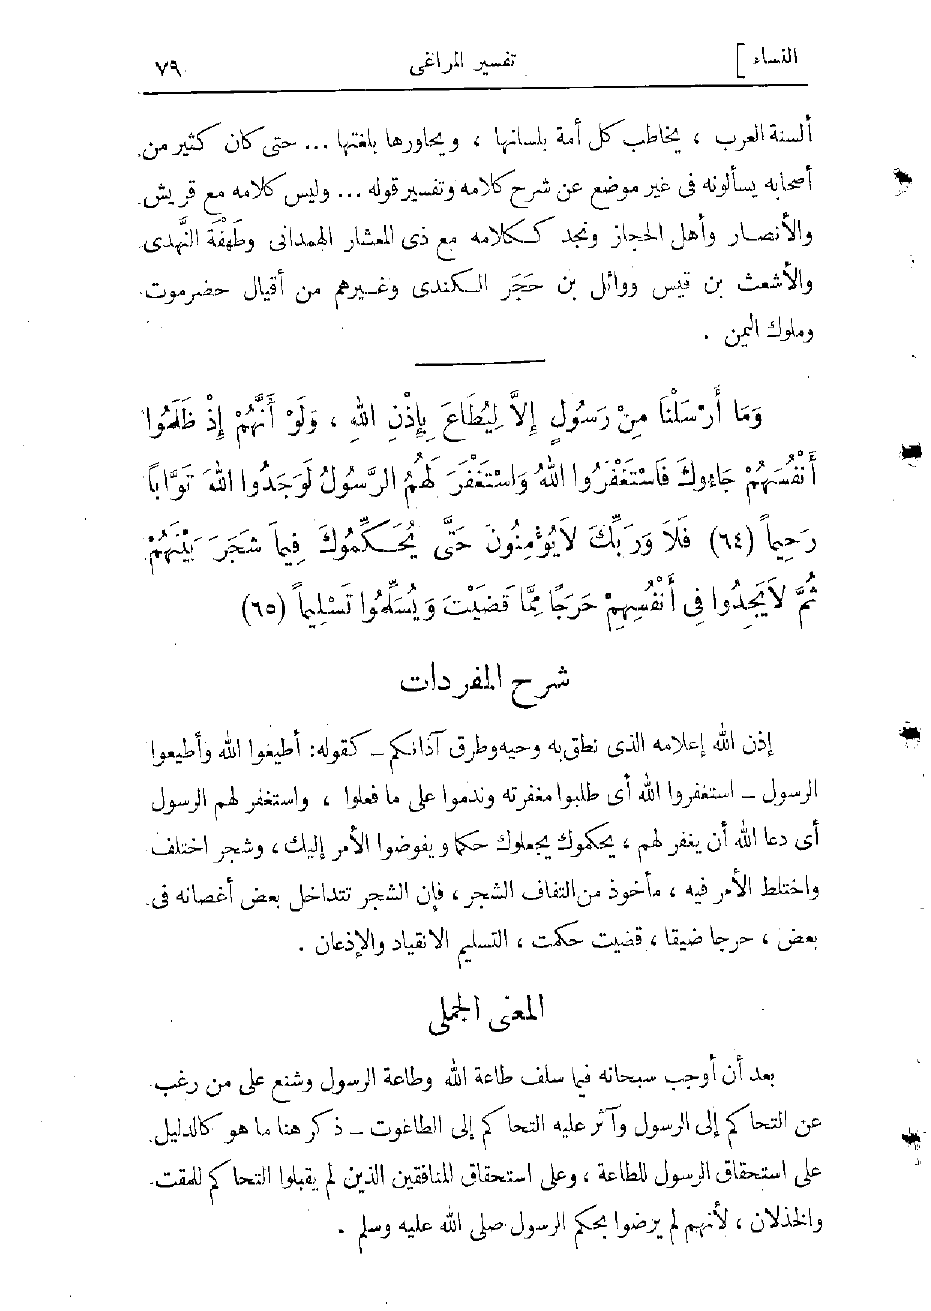 النساء ] تفسير المراغى ٧٩
ألسنة العرب ، يخاطب كل أمة بلسانها ، ويحاورها بلغتها ... حتى كان كثير من
أصحابه يسألونه فى غير موضع عن شرح كلامه وتفسير قوله ... وليس كلامه مع قريش
والأنصار وأهل الحجاز ونجد ككلامه مع ذى المعشار الهمدانى وطَهْفَة النَّهدى
والأشعث بن قيس ووائل بن حَجَر الكندى وغيرهم من أقيال حضرموت
وملوك اليمن .
وَمَا أَرْسَلْنَا مِنْ رَسُولٍ إِلاَّ لِيُطَاعَ بِإِذْنِ اللهِ ، وَلَوْ أَنَّهُمْ إِذْ ظَلَمُوا
أَنْفُسَهُمْ جَاءُوكَ فَاسْتَغْفَرُوا اللهَ وَاسْتَغْفَرَ لَهُمُ الرَّسُولُ لَوَجَدُوا اللهَ تَوَّابًا
رَحِيماً (٦٤) فَلَا وَرَبِّكَ لَا يُؤْمِنُونَ حَتَّى يُحَكِّمُوكَ فِيمَا شَجَرَ بَيْنَهُمْ
ثُمَّ لَا يَجِدُوا فِى أَنْفُسِهِمْ حَرَجًا مِمَّا قَضَيْتَ وَيُسَلِّمُوا تَسْلِيماً (٦٥)
شرح المفردات
إذن الله إعلامه الذى نطق به وحيه وطرق آذانكم ــ كقوله: أطيعوا الله وأطيعوا
الرسول ــ استغفروا الله أى طلبوا مغفرته وندموا على ما فعلوا ، واستغفر لهم الرسول
أى دعا الله أن يغفر لهم ، يحكموك يجعلوك حكما ويفوضوا الأمر إليك ، وشجر اختلف
واختلط الأمر فيه ، مأخوذ من التفاف الشجر ، فإن الشجر تتداخل بعض أغصانه فى
بعض ، حرجا ضيقا ، قضيت حكمت ، التسليم الانقياد والإذعان .
المعنى الجملى
بعد أن أوجب سبحانه فيما سلف طاعة الله وطاعة الرسول وشنع على من رغب
عن التحاكم إلى الرسول وآثر عليه التحاكم إلى الطاغوت ــ ذكر هنا ما هو كالدليل
على استحقاق الرسول للطاعة ، وعلى استحقاق المنافقين الذين لم يقبلوا التحاكم للمقت
والخذلان ، لأنهم لم يرضوا بحكم الرسول صلى الله عليه وسلم .